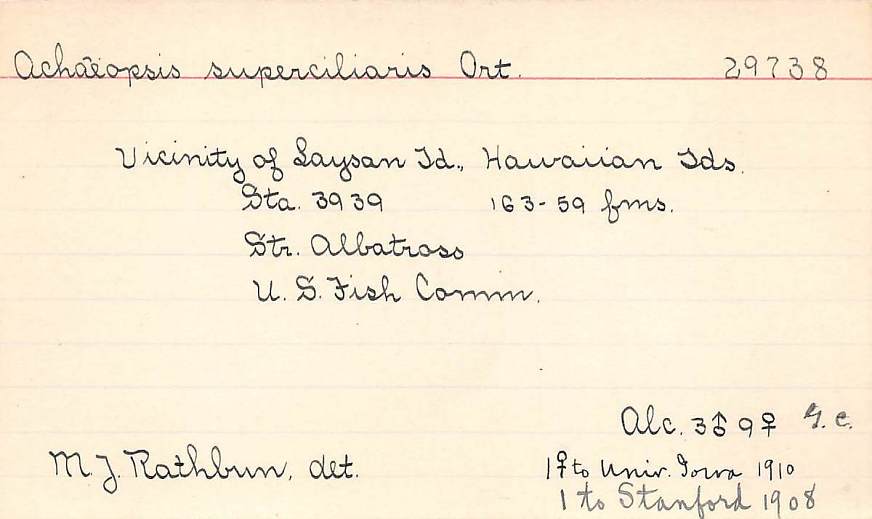 Achäeopsis superciliaris Ort. 29738
Vicinity of Laysan Id., Hawaiian Ids.
Sta. 3939 163-59 fms.
Str. Albatross
U. S. Fish Comm.
Alc. 3♂ 9♀ G. C.
M. J. Rathbun, det. 1♀ to Univ. Iowa 1910
1 to Stanford 1908